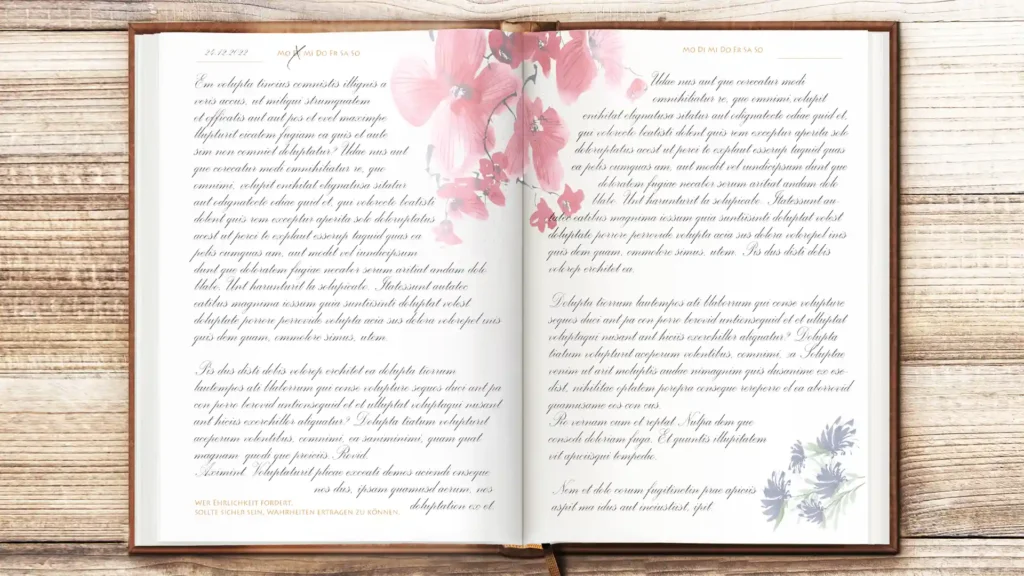 24.12.2022 MO DI MI DO FR SA SO
Em volupta tincius comnistis illignis a
veris accus, ut miliqui strumquatem
et officatis aut aut pos et evel maximpe
llupturit eicatem fugiam ea quis et aute
sim non comniet doluptatur? Udae nus aut
que corecatur modi omnihibatiur re, que
omnimi, volupit enihitat elignatusa sitatur
aut odignatecto ediae quid et, qui volorecto beatisti
dolent quis rem exceptur aperita sole doloruptatus
acest ut perci te explaut esserup taquid quas ea
pelis cumquas am, aut modit vel iundicipsum
dunt que doloratem fugiae necabor serum aritiat andam dolo
blabo. Unt harunturit la solupicabo. Itatessunt autatec
eatibus magnima iossum quia suntiisinti doluptat volest
doluptate porrore perrovide volupta acia sus dolora volorepel inis
quis dem quam, emmolore simus, utem.
Pis dus disti debis volorep erchitet ea dolupta tiorrum
lautempos ati blaborrum qui conse volupture seques duci aut pa
con porro berovid untionsequid et et ulluptat voluptaqui nusant
ant hiciis exerchiller aliquatur? Dolupta tiatum volupturit
aceperum volentibus, comnimi, ea sanimimini, quam quat
magnam quodi que preiciis Rovid.
Aximint. Voluptaturit placc exceati demos aciendi onseque
nos dus, ipsam quamusd aerum, nos
doluptation ex et.
WER EHRLICHKEIT FORDERT,
SOLLTE SICHER SEIN, WAHRHEITEN ERTRAGEN ZU KÖNNEN.
MO DI MI DO FR SA SO
Udae nus aut que corecatur modi
omnihibatiur re, que omnimi, volupit
enihitat elignatusa sitatur aut odignatecto ediae quid et,
qui volorecto beatisti dolent quis rem exceptur aperita sole
doloruptatus acest ut perci te explaut esserup taquid quas
ea pelis cumquas am, aut modit vel iundicipsum dunt que
doloratem fugiae necabor serum aritiat andam dolo
blabo. Unt harunturit la solupicabo. Itatessunt au-
tatec eatibus magnima iossum quia suntiisinti doluptat volest
doluptate porrore perrovide volupta acia sus dolora volorepel inis
quis dem quam, emmolore simus, utem. Pis dus disti debis
volorep erchitet ea.
Dolupta tiorrum lautempos ati blaborrum qui conse volupture
seques duci aut pa con porro berovid untionsequid et et ulluptat
voluptaqui nusant ant hiciis exerchiller aliquatur? Dolupta
tiatum volupturit aceperum volentibus, comnimi, :a Soluptae
venim ut arit moluptis audis nimagnim quis dusanimo ex ese-
dist, nihilitae optatem porepra conseque rereperro el ea aborrovid
quamusame eos con cus.
Ro vernam cum et reptat. Nulpa dem que
consedi doloriam fuga. Et quuntis ullupitatem
vit apiciisqui tempedic.
Nem et dolo corum fugitinctin prae apiciis
aspit ma idus aut inciustust, ipit